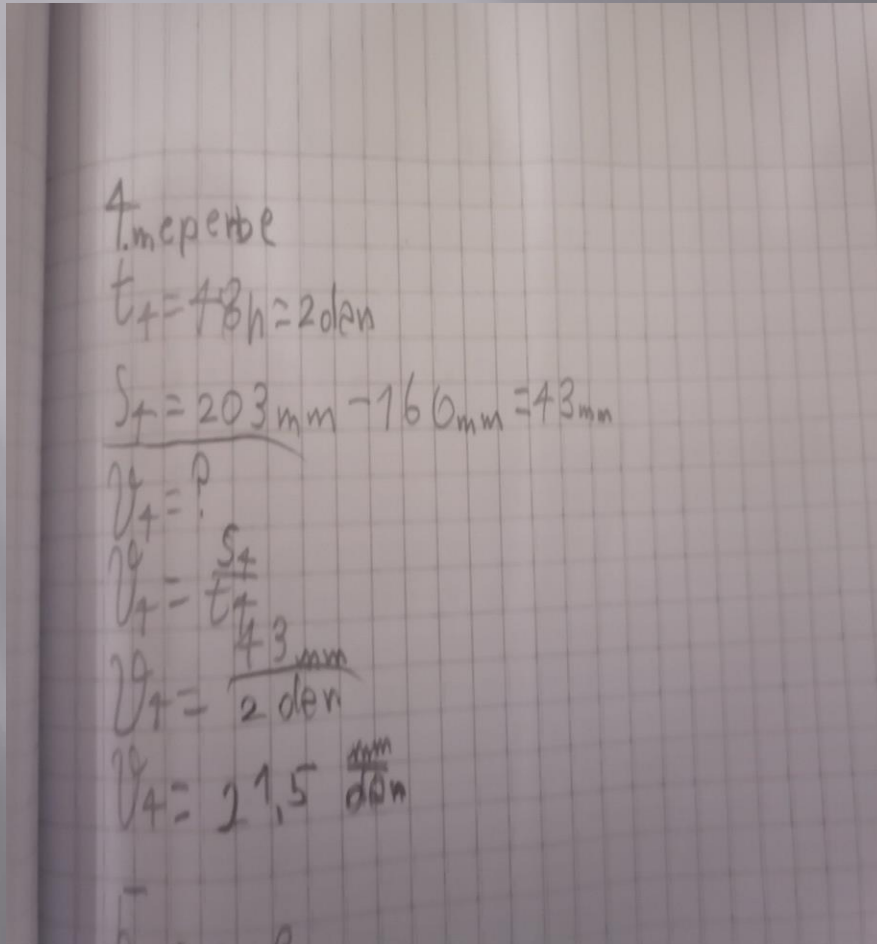 4.мерење
t₄=48h=2den
S₄=203mm-160mm=43mm
V₄=?
V₄=S₄/t₄
V₄=43mm/2den
V₄=21,5 mm/den